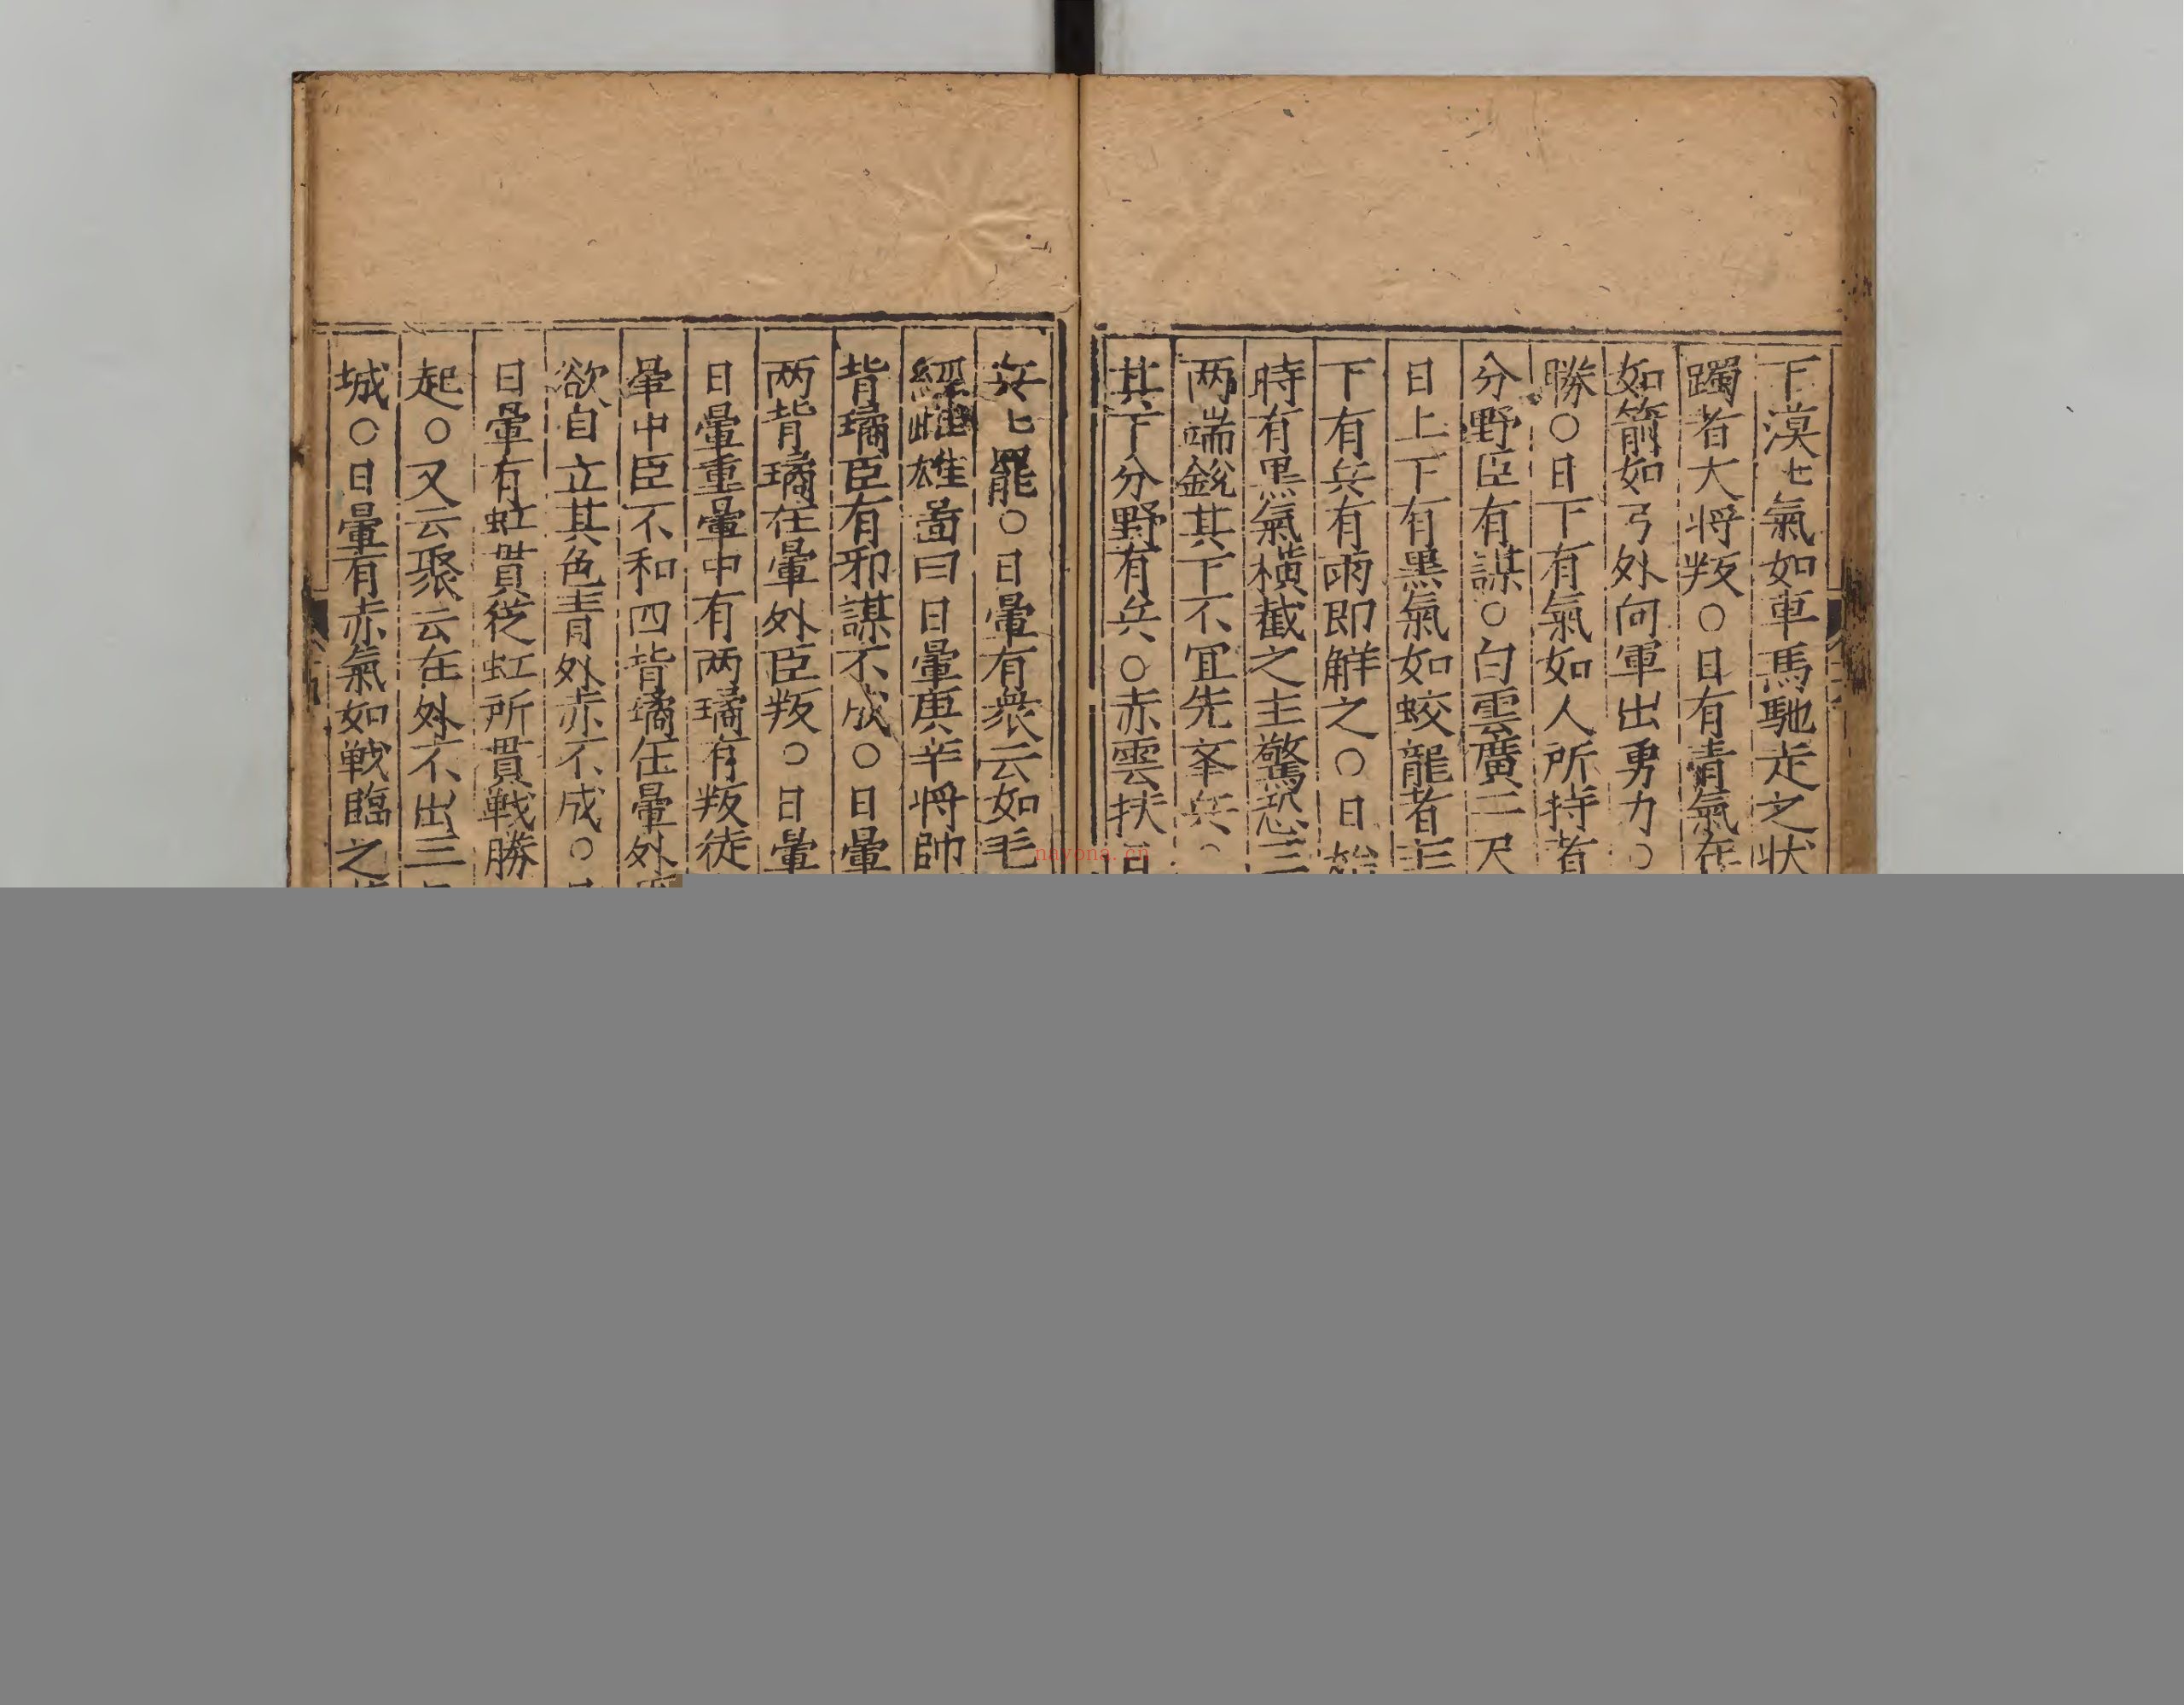 下漠〻氣如車馬馳走之狀
躅者大将叛○日有青氣在
如箭如弓外向軍出勇力○
勝○日下有氣如人所持者
分野臣有謀○白雲廣二尺
日上下有黑氣如蛟龍者主
下有兵有雨即解之○日始
時有黒氣橫截之主驚恐三
两端銳其下不宜先举兵○
其下分野有兵○赤雲扶日
兵匕罷○日暈有衆云如毛
經雌雄啚曰日暈庚辛将帥
背璚臣有邪謀不成○日暈
两背璚在暈外臣叛○日暈
日暈重暈中有两璚有叛徒
暈中臣不和四背璚在暈外
欲自立其色青外赤不成○
日暈有虹貫從虹所貫戰勝
起○又云聚云在外不出三
城○日暈有赤氣如戦臨之
nayona.cn